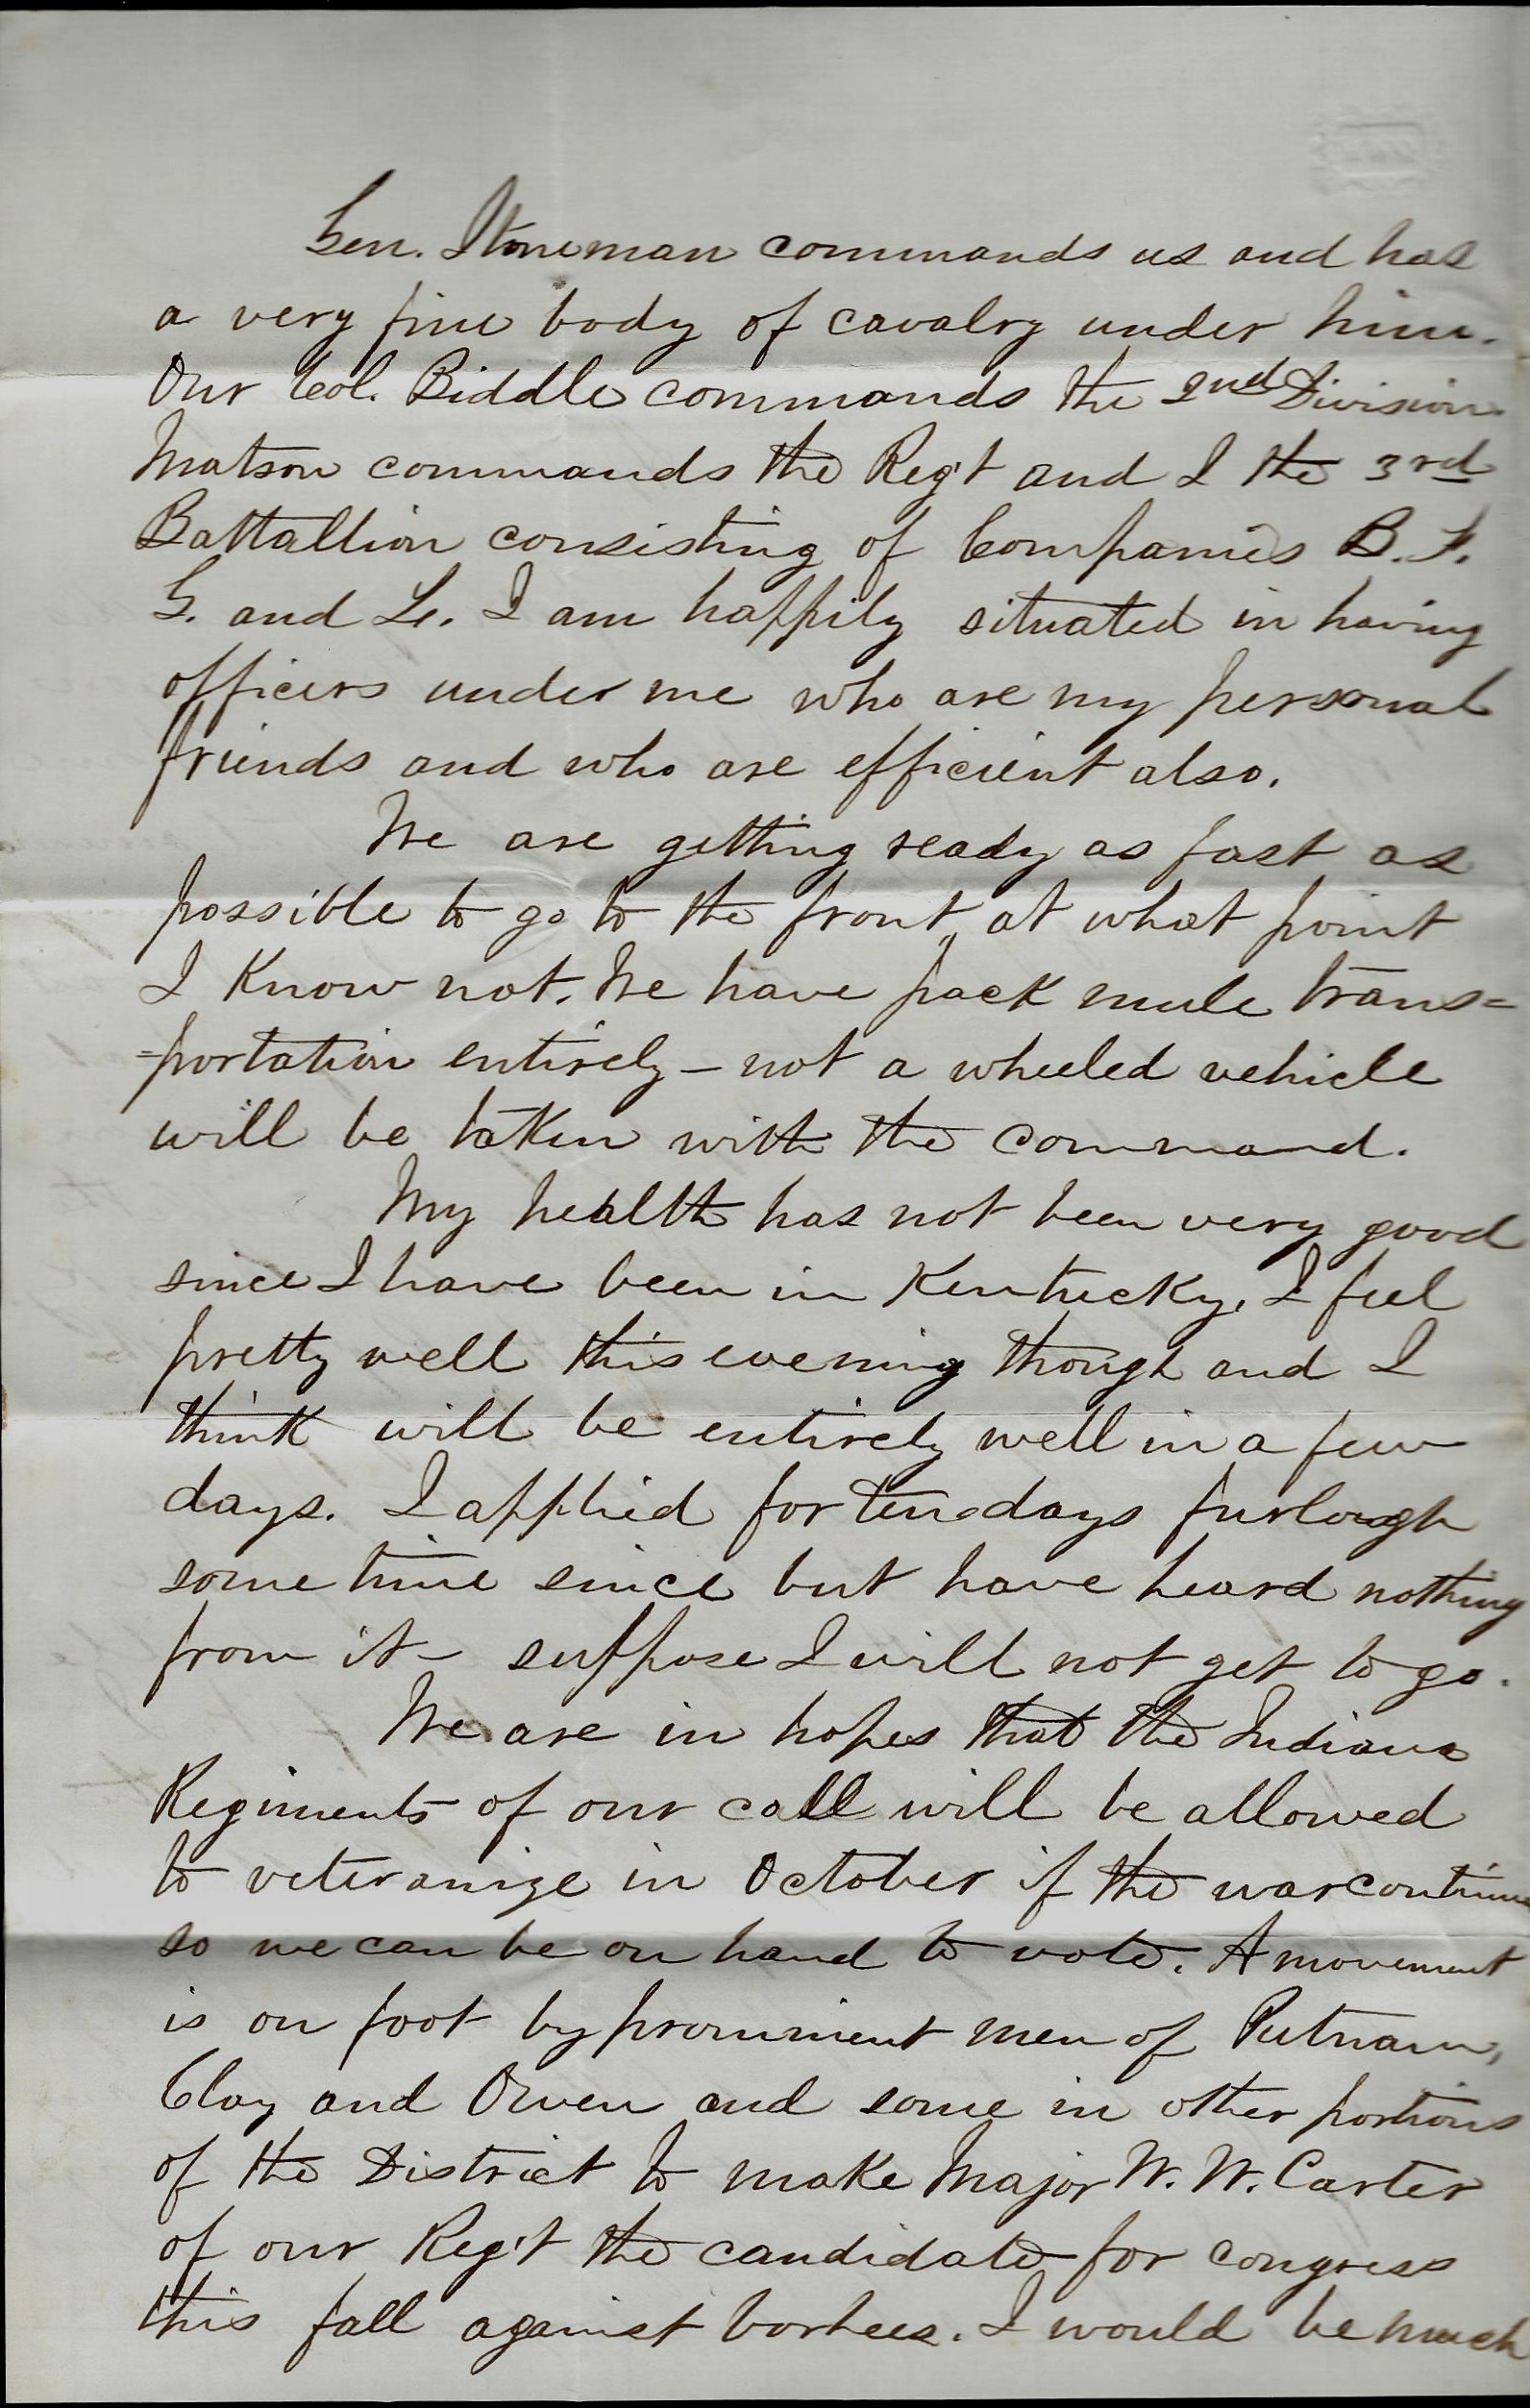 Gen. Stoneman commands us and has
a very fine body of cavalry under him.
Our Col. Biddle commands the 2nd Division
Matson commands the Reg't and I the 3rd
Battallion consisting of Companies B. F.
G. and L. I am happily situated in having
officers under me who are my personal
friends and who are efficient also.
We are getting ready as fast as
possible to go to the front, at what point
I Know not. We have pack mule trans=
=portation entirely – not a wheeled vehicle
will be taken with the command.
My health has not been very good
since I have been in Kentucky. I feel
pretty well this evening though and I
think will be entirely well in a few
days. I applied for ten days furlough
some time since but have heard nothing
from it – suppose I will not get to go.
We are in hopes that the Indiana
Regiments of our call will be allowed
to veteranize in October if the war continues
so we can be on hand to vote. A movement
is on foot by prominent men of Putnam,
Clay and Owen and some in other portions
of the District to make Major W. W. Carter
of our Reg't the candidate for congress
this fall against Vorhees. I would be much